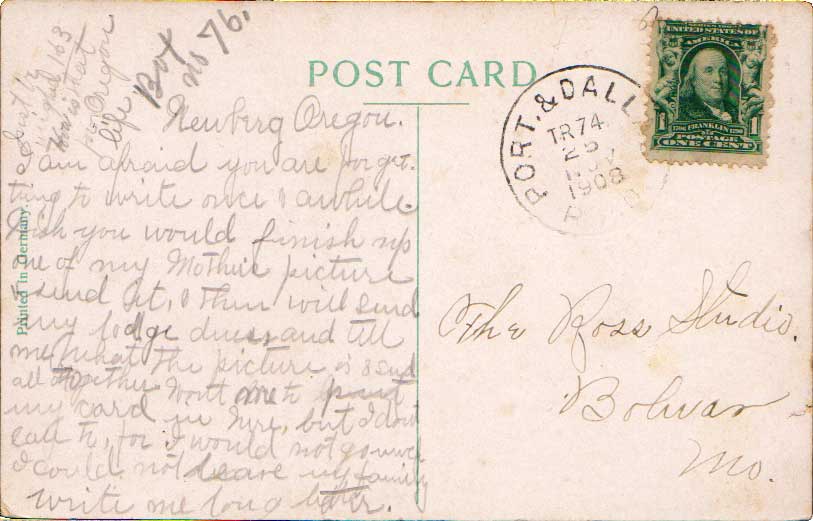 Box
no 76.
weighed 163
How is that
for Oregon
life
POST CARD
Newberg Oregon.
I am afraid you are forget-
ting to write once & awhile
Wish you would finish up
one of my Mothers picture
& send it, & then will send
my lodge dues, and tell
me what the picture is & send
all together Wont me to
my card in here, but I dont
care to, for I would not go much
I could not leave my family
write me long letter.
Printed in Germany.
PORT. & DALL
TR74.
25
NOV
1908
UNITED STATES OF
1706 FRANKLIN 1790
1
1
ONE CENT
The Ross Studio.
Bolivar
Mo.